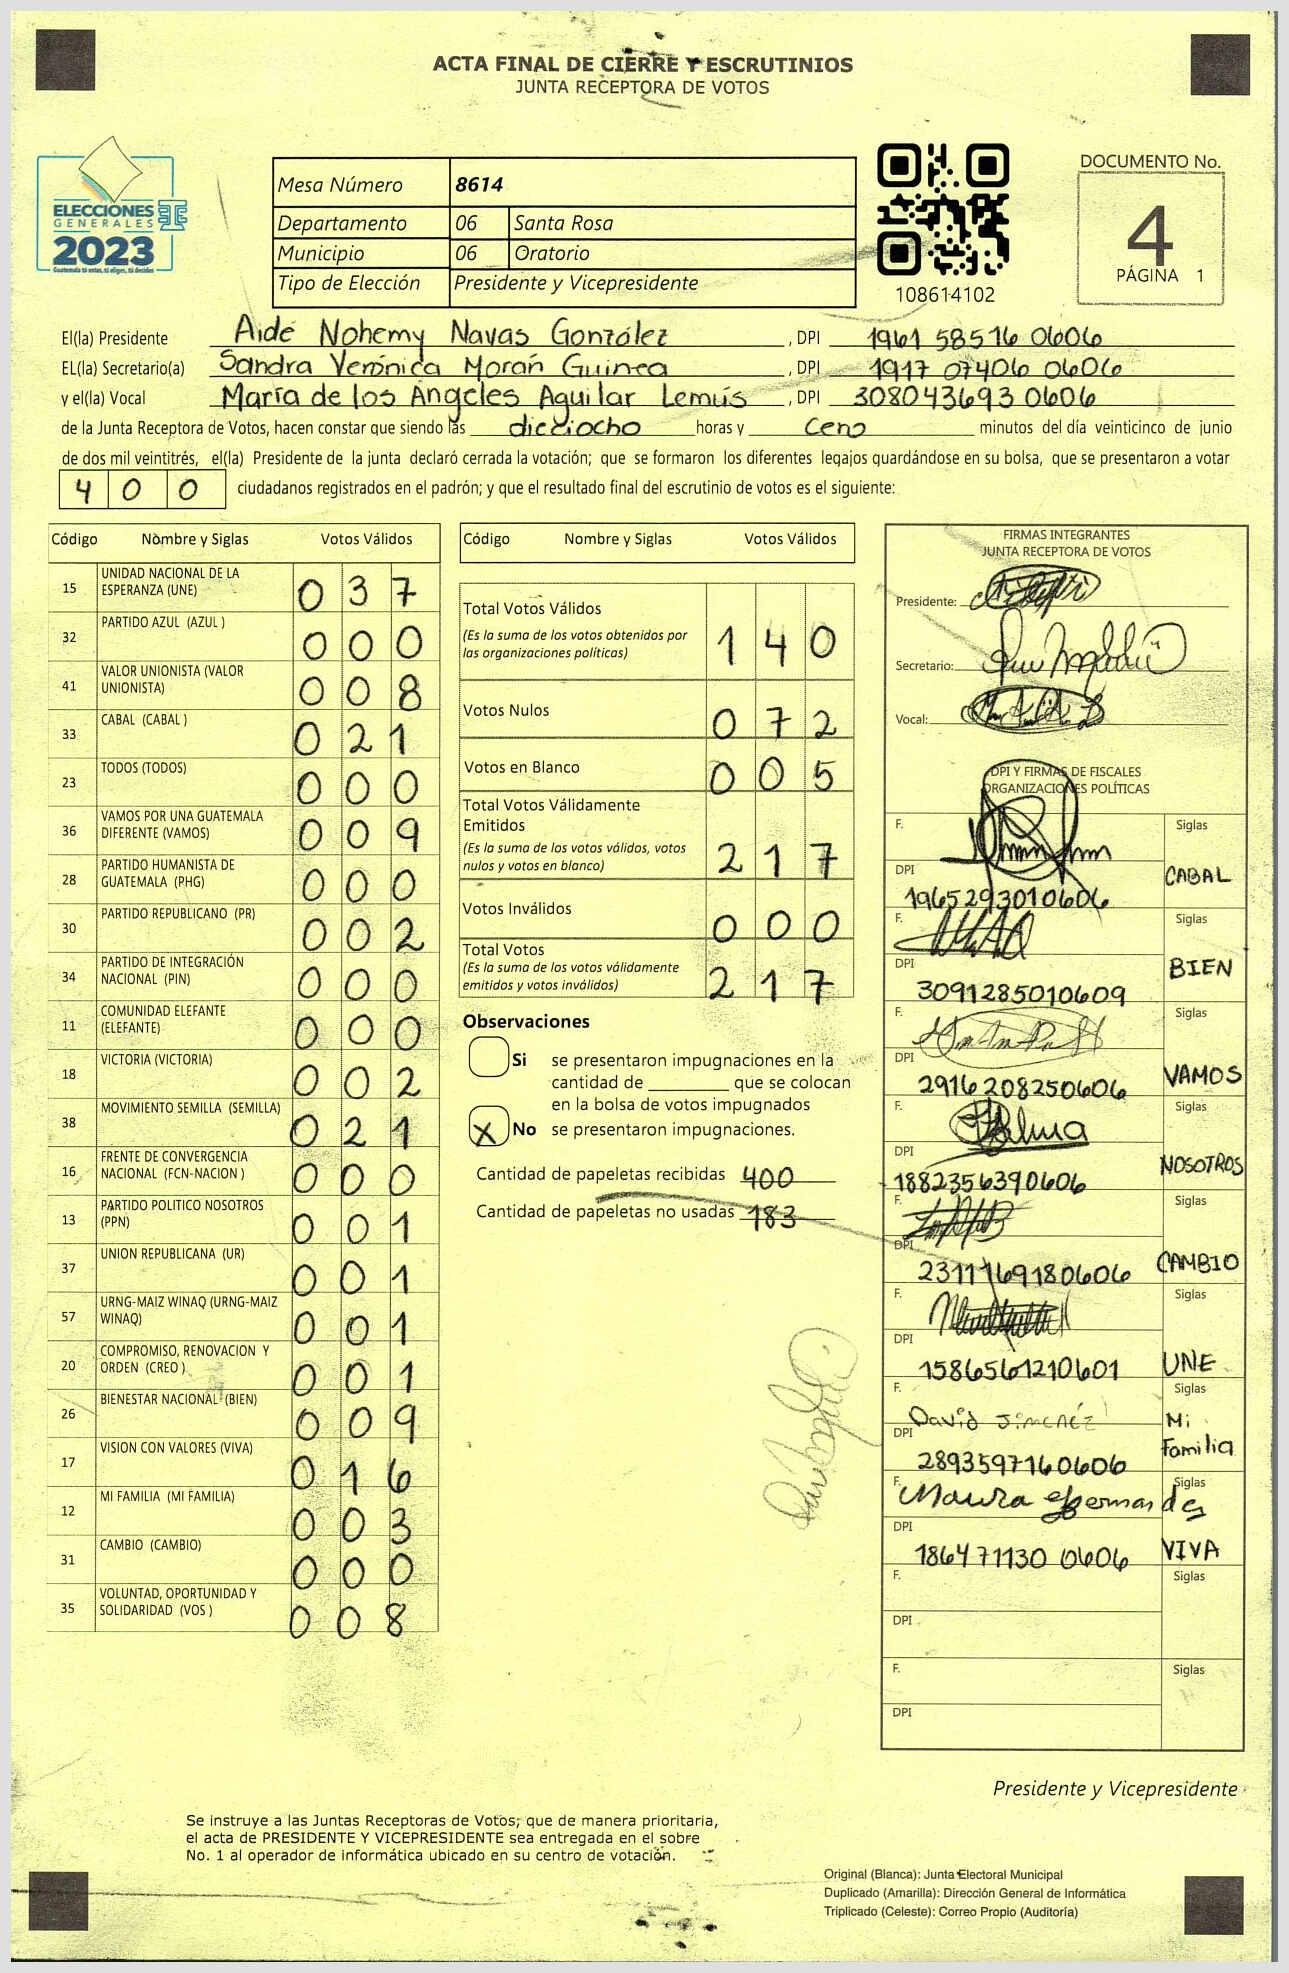 ACTA FINAL DE CIERRE Y ESCRUTINIOS
JUNTA RECEPTORA DE VOTOS
ELECCIONES
GENERALES
2023
Guatemala tú votas, tú eliges, tú decides
Mesa Número 8614
Departamento 06 Santa Rosa
Municipio 06 Oratorio
Tipo de Elección Presidente y Vicepresidente
108614102
DOCUMENTO No.
4
PÁGINA 1
El(la) Presidente Aidé Nohemy Navas González, DPI 1961 58516 0606
EL(la) Secretario(a) Sandra Verónica Morán Guinea, DPI 1917 07406 0606
y el(la) Vocal María de los Angeles Aguilar Lemus, DPI 308043693 0606
de la Junta Receptora de Votos, hacen constar que siendo las dieciocho horas y Cero minutos del día veinticinco de junio
de dos mil veintitrés, el(la) Presidente de la junta declaró cerrada la votación; que se formaron los diferentes legajos guardándose en su bolsa, que se presentaron a votar
4 0 0 ciudadanos registrados en el padrón; y que el resultado final del escrutinio de votos es el siguiente:
Código Nombre y Siglas Votos Válidos
15 UNIDAD NACIONAL DE LA ESPERANZA (UNE) 0 3 7
32 PARTIDO AZUL (AZUL ) 0 0 0
41 VALOR UNIONISTA (VALOR UNIONISTA) 0 0 8
33 CABAL (CABAL ) 0 2 1
23 TODOS (TODOS) 0 0 0
36 VAMOS POR UNA GUATEMALA DIFERENTE (VAMOS) 0 0 9
28 PARTIDO HUMANISTA DE GUATEMALA (PHG) 0 0 0
30 PARTIDO REPUBLICANO (PR) 0 0 2
34 PARTIDO DE INTEGRACIÓN NACIONAL (PIN) 0 0 0
11 COMUNIDAD ELEFANTE (ELEFANTE) 0 0 0
18 VICTORIA (VICTORIA) 0 0 2
38 MOVIMIENTO SEMILLA (SEMILLA) 0 2 1
16 FRENTE DE CONVERGENCIA NACIONAL (FCN-NACION ) 0 0 0
13 PARTIDO POLITICO NOSOTROS (PPN) 0 0 1
37 UNION REPUBLICANA (UR) 0 0 1
57 URNG-MAIZ WINAQ (URNG-MAIZ WINAQ) 0 0 1
20 COMPROMISO, RENOVACION Y ORDEN (CREO ) 0 0 1
26 BIENESTAR NACIONAL (BIEN) 0 0 9
17 VISION CON VALORES (VIVA) 0 1 6
12 MI FAMILIA (MI FAMILIA) 0 0 3
31 CAMBIO (CAMBIO) 0 0 0
35 VOLUNTAD, OPORTUNIDAD Y SOLIDARIDAD (VOS ) 0 0 8
Código Nombre y Siglas Votos Válidos
Total Votos Válidos
(Es la suma de los votos obtenidos por
las organizaciones políticas) 1 4 0
Votos Nulos 0 7 2
Votos en Blanco 0 0 5
Total Votos Válidamente
Emitidos
(Es la suma de los votos válidos, votos
nulos y votos en blanco) 2 1 7
Votos Inválidos 0 0 0
Total Votos
(Es la suma de los votos válidamente
emitidos y votos inválidos) 2 1 7
Observaciones
Si se presentaron impugnaciones en la
cantidad de ________ que se colocan
en la bolsa de votos impugnados
X No se presentaron impugnaciones.
Cantidad de papeletas recibidas 400
Cantidad de papeletas no usadas 183
FIRMAS INTEGRANTES
JUNTA RECEPTORA DE VOTOS
Presidente:
Secretario:
Vocal:
DPI Y FIRMAS DE FISCALES
ORGANIZACIONES POLÍTICAS
F. Siglas
DPI 1965293010606 CABAL
F. Siglas
DPI 3091285010609 BIEN
F. Siglas
DPI 2916208250606 VAMOS
F. Siglas
DPI 1882356390606 NOSOTROS
F. Siglas
DPI 2311169180606 CAMBIO
F. Siglas
DPI 1586561210601 UNE
F. David Jimenéz Siglas
DPI 2893597160606 Mi Familia
F. Maura Siglas
DPI 186471130 0606 VIVA
F. Siglas
DPI
F. Siglas
DPI
Presidente y Vicepresidente
Se instruye a las Juntas Receptoras de Votos; que de manera prioritaria,
el acta de PRESIDENTE Y VICEPRESIDENTE sea entregada en el sobre
No. 1 al operador de informática ubicado en su centro de votación.
Original (Blanca): Junta Electoral Municipal
Duplicado (Amarilla): Dirección General de Informática
Triplicado (Celeste): Correo Propio (Auditoría)